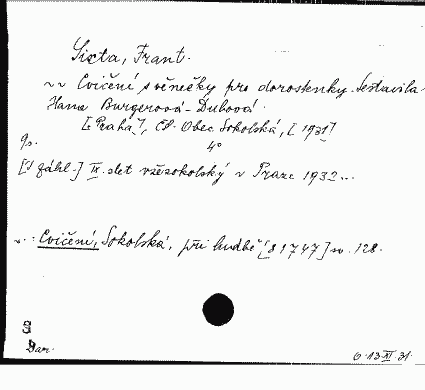 Sixta, Frant.
~~ Cvičení s věnečky pro dorostenky. Sestavila
Hana Burgerová-Dubová.
[Praha], Čs. Obec Sokolská, [1931]
9s. 4°
[Záhl.] IX. slet všesokolský v Praze 1932...
Cvičení, Sokolská, při hudbě [8 1747] 128.
S
Dar.
6. 13 XI. 31.